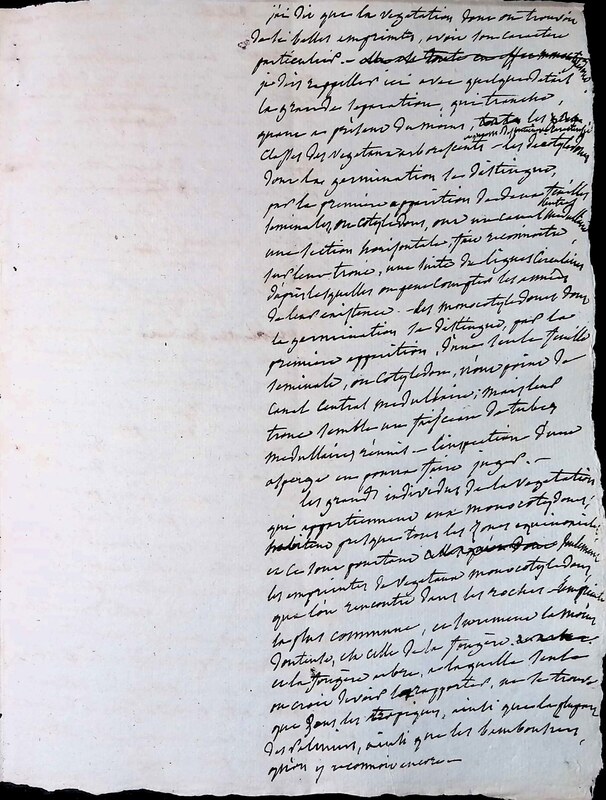 j'ai dit que la vegetation dont on trouvoit
de si belles empreintes, avoit son caractere
particulier -
je dois rappeller ici avec quelque detail
la grande separation, qui tranche,
quant a present du moins, les
classes des vegetaux arborescents - les dicotyledones
dont la germination se distingue,
par la premiere apparition de deux feuilles
seminales, ou cotyledons, ont un canal medullaire
une section horizontale, fait reconnoitre
sur leur tronc, une suite de lignes circulaires
d'après lesquelles on peut compter les années
de leur existence - les monocotyledones dont
la germination se distingue, par la
premiere apparition, d'une seule feuille
seminale, ou cotyledon, n'ont point de
canal central medullaire; mais leur
tronc semble un faisceau de tubes
medullaires réunis - l'inspection d'une
asperge en pourra faire juger. -
les grands individus de la vegetation
qui appartiennent aux monocotyledons,
presque tous les zones equinoxiales
et ce sont pourtant seulement
les empreintes de vegetaux monocotyledons
que l'on rencontre dans les roches - l'empreinte
la plus commune, et surement la moins
douteuse, est celle de la fougère
et la fougère arbre, a laquelle seule
on croit devoir la rapporter, ne se trouve
que sous les tropiques, ainsi que la plupart
des palmiers, ainsi que les bambousiers,
qu'on y reconnoit encore -